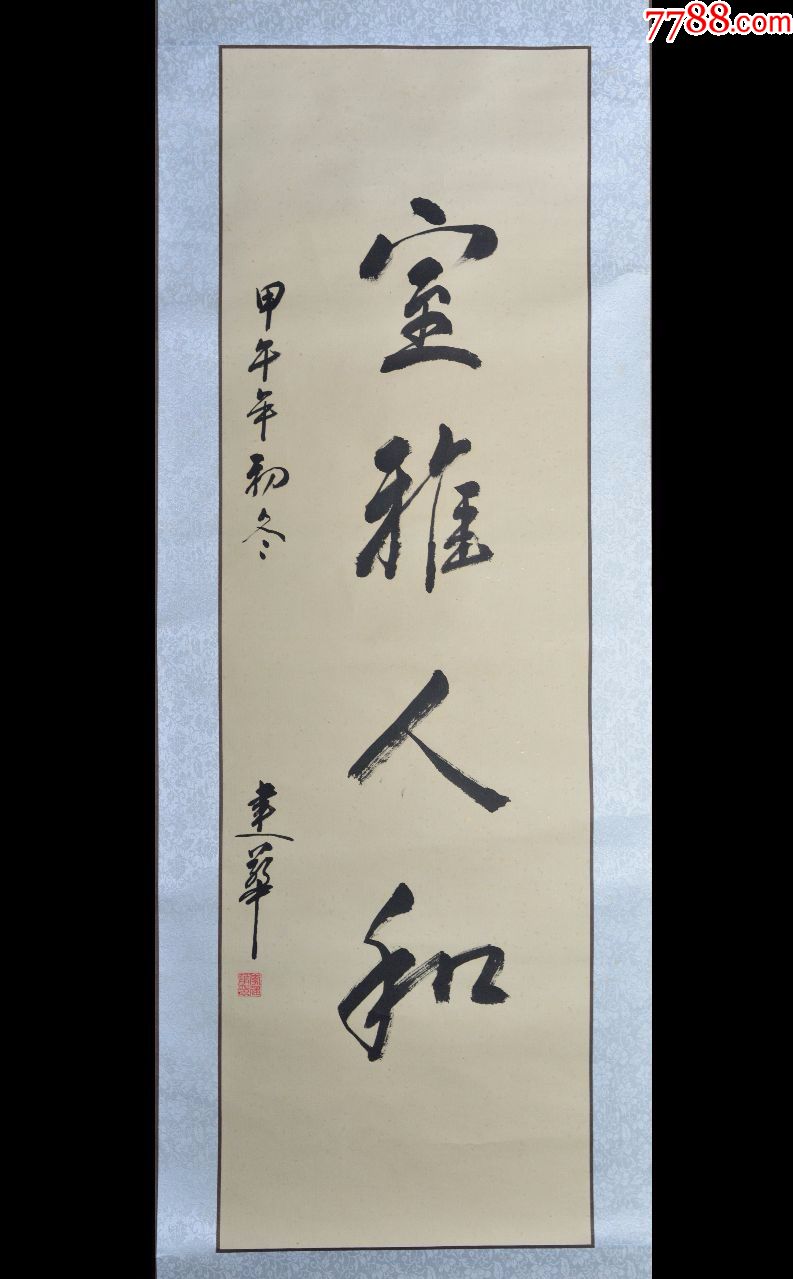 7788.com
室雅人和
甲午年初冬
建華